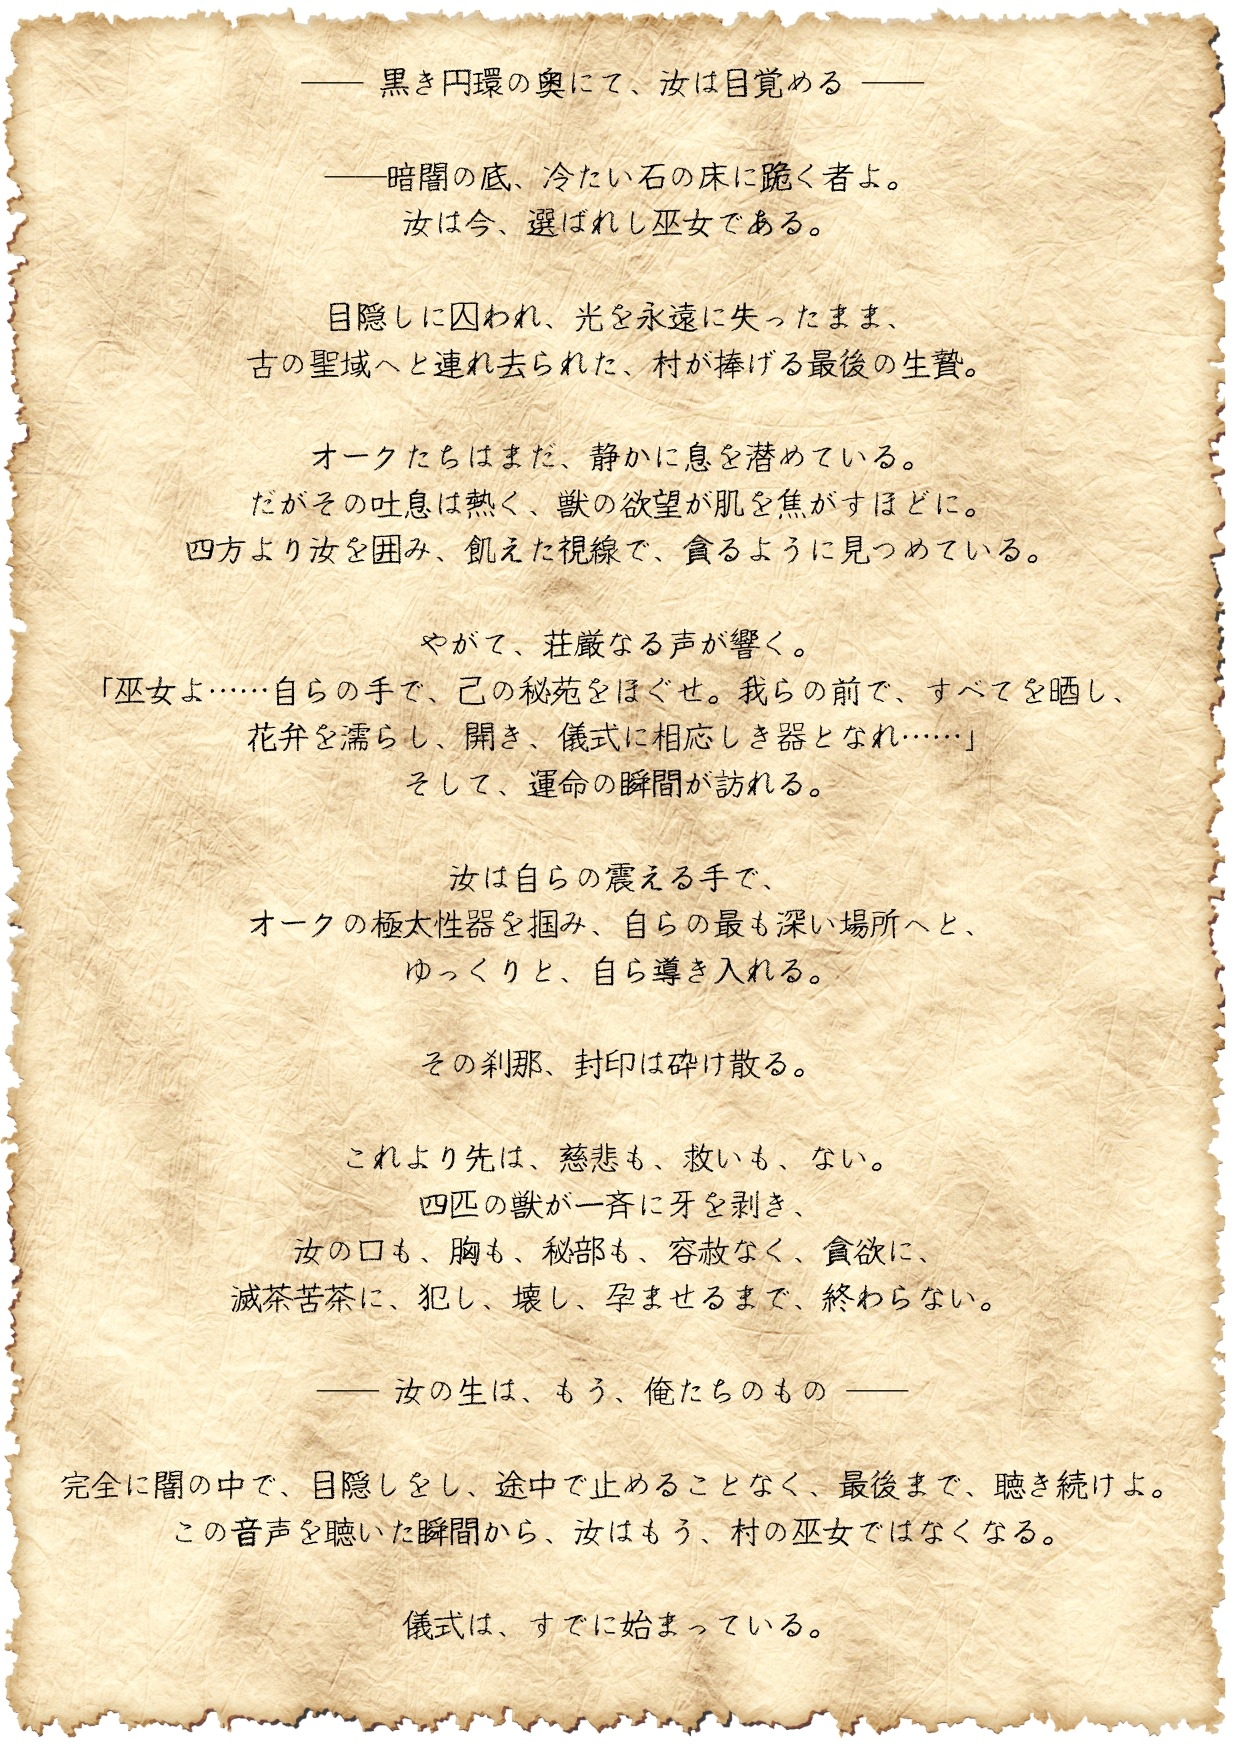 ―― 黒き円環の奥にて、汝は目覚める ――
――暗闇の底、冷たい石の床に跪く者よ。
汝は今、選ばれし巫女である。
目隠しに囚われ、光を永遠に失ったまま、
古の聖域へと連れ去られた、村が捧げる最後の生贄。
オークたちはまだ、静かに息を潜めている。
だがその吐息は熱く、獣の欲望が肌を焦がすほどに。
四方より汝を囲み、飢えた視線で、貪るように見つめている。
やがて、荘厳なる声が響く。
「巫女よ……自らの手で、己の秘苑をほぐせ。我らの前で、すべてを晒し、
花弁を濡らし、開き、儀式に相応しき器となれ……」
そして、運命の瞬間が訪れる。
汝は自らの震える手で、
オークの極太性器を掴み、自らの最も深い場所へと、
ゆっくりと、自ら導き入れる。
その刹那、封印は砕け散る。
これより先は、慈悲も、救いも、ない。
四匹の獣が一斉に牙を剥き、
汝の口も、胸も、秘部も、容赦なく、貪欲に、
滅茶苦茶に、犯し、壊し、孕ませるまで、終わらない。
―― 汝の生は、もう、俺たちのもの ――
完全に闇の中で、目隠しをし、途中で止めることなく、最後まで、聴き続けよ。
この音声を聴いた瞬間から、汝はもう、村の巫女ではなくなる。
儀式は、すでに始まっている。